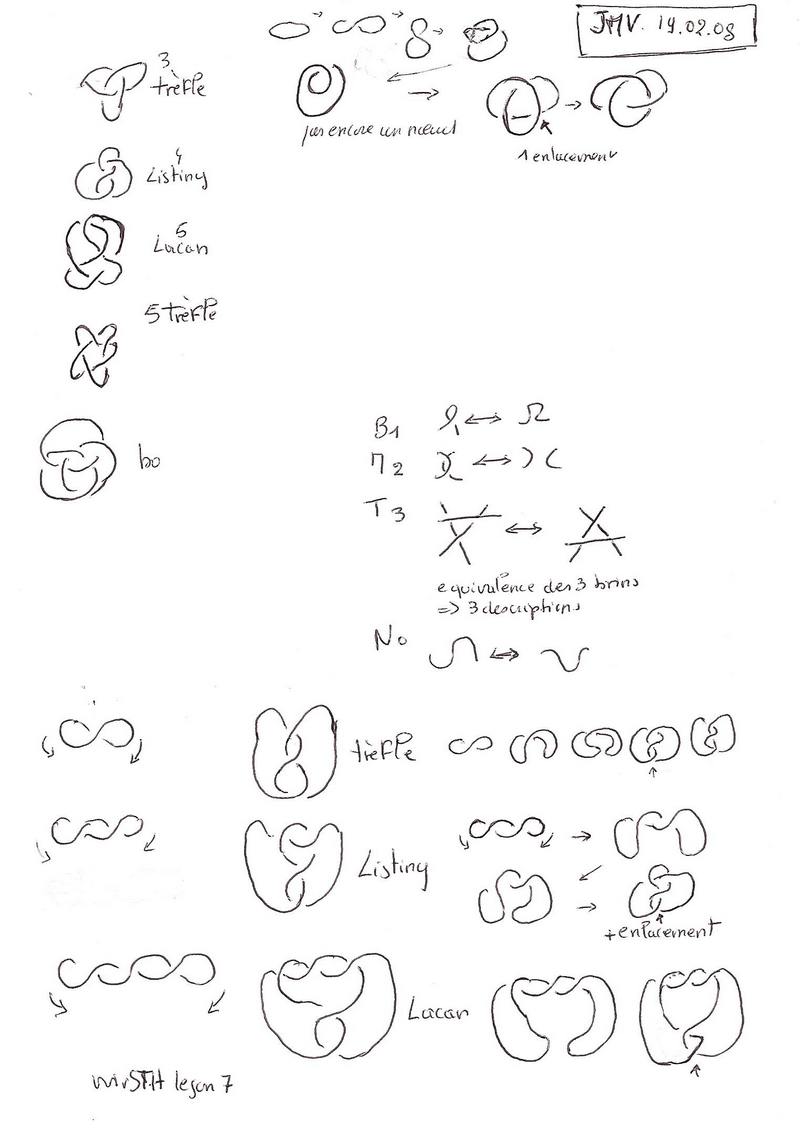 JMV. 19.02.08
3
trèfle
pas encore un nœud
1 enlacement
4
Listing
5
Lacan
5 trèfle
bo
B1
M2
T3
equivalence des 3 brins
=> 3 descriptions
No
trèfle
Listing
+ enlacement
Lacan
leçon 7